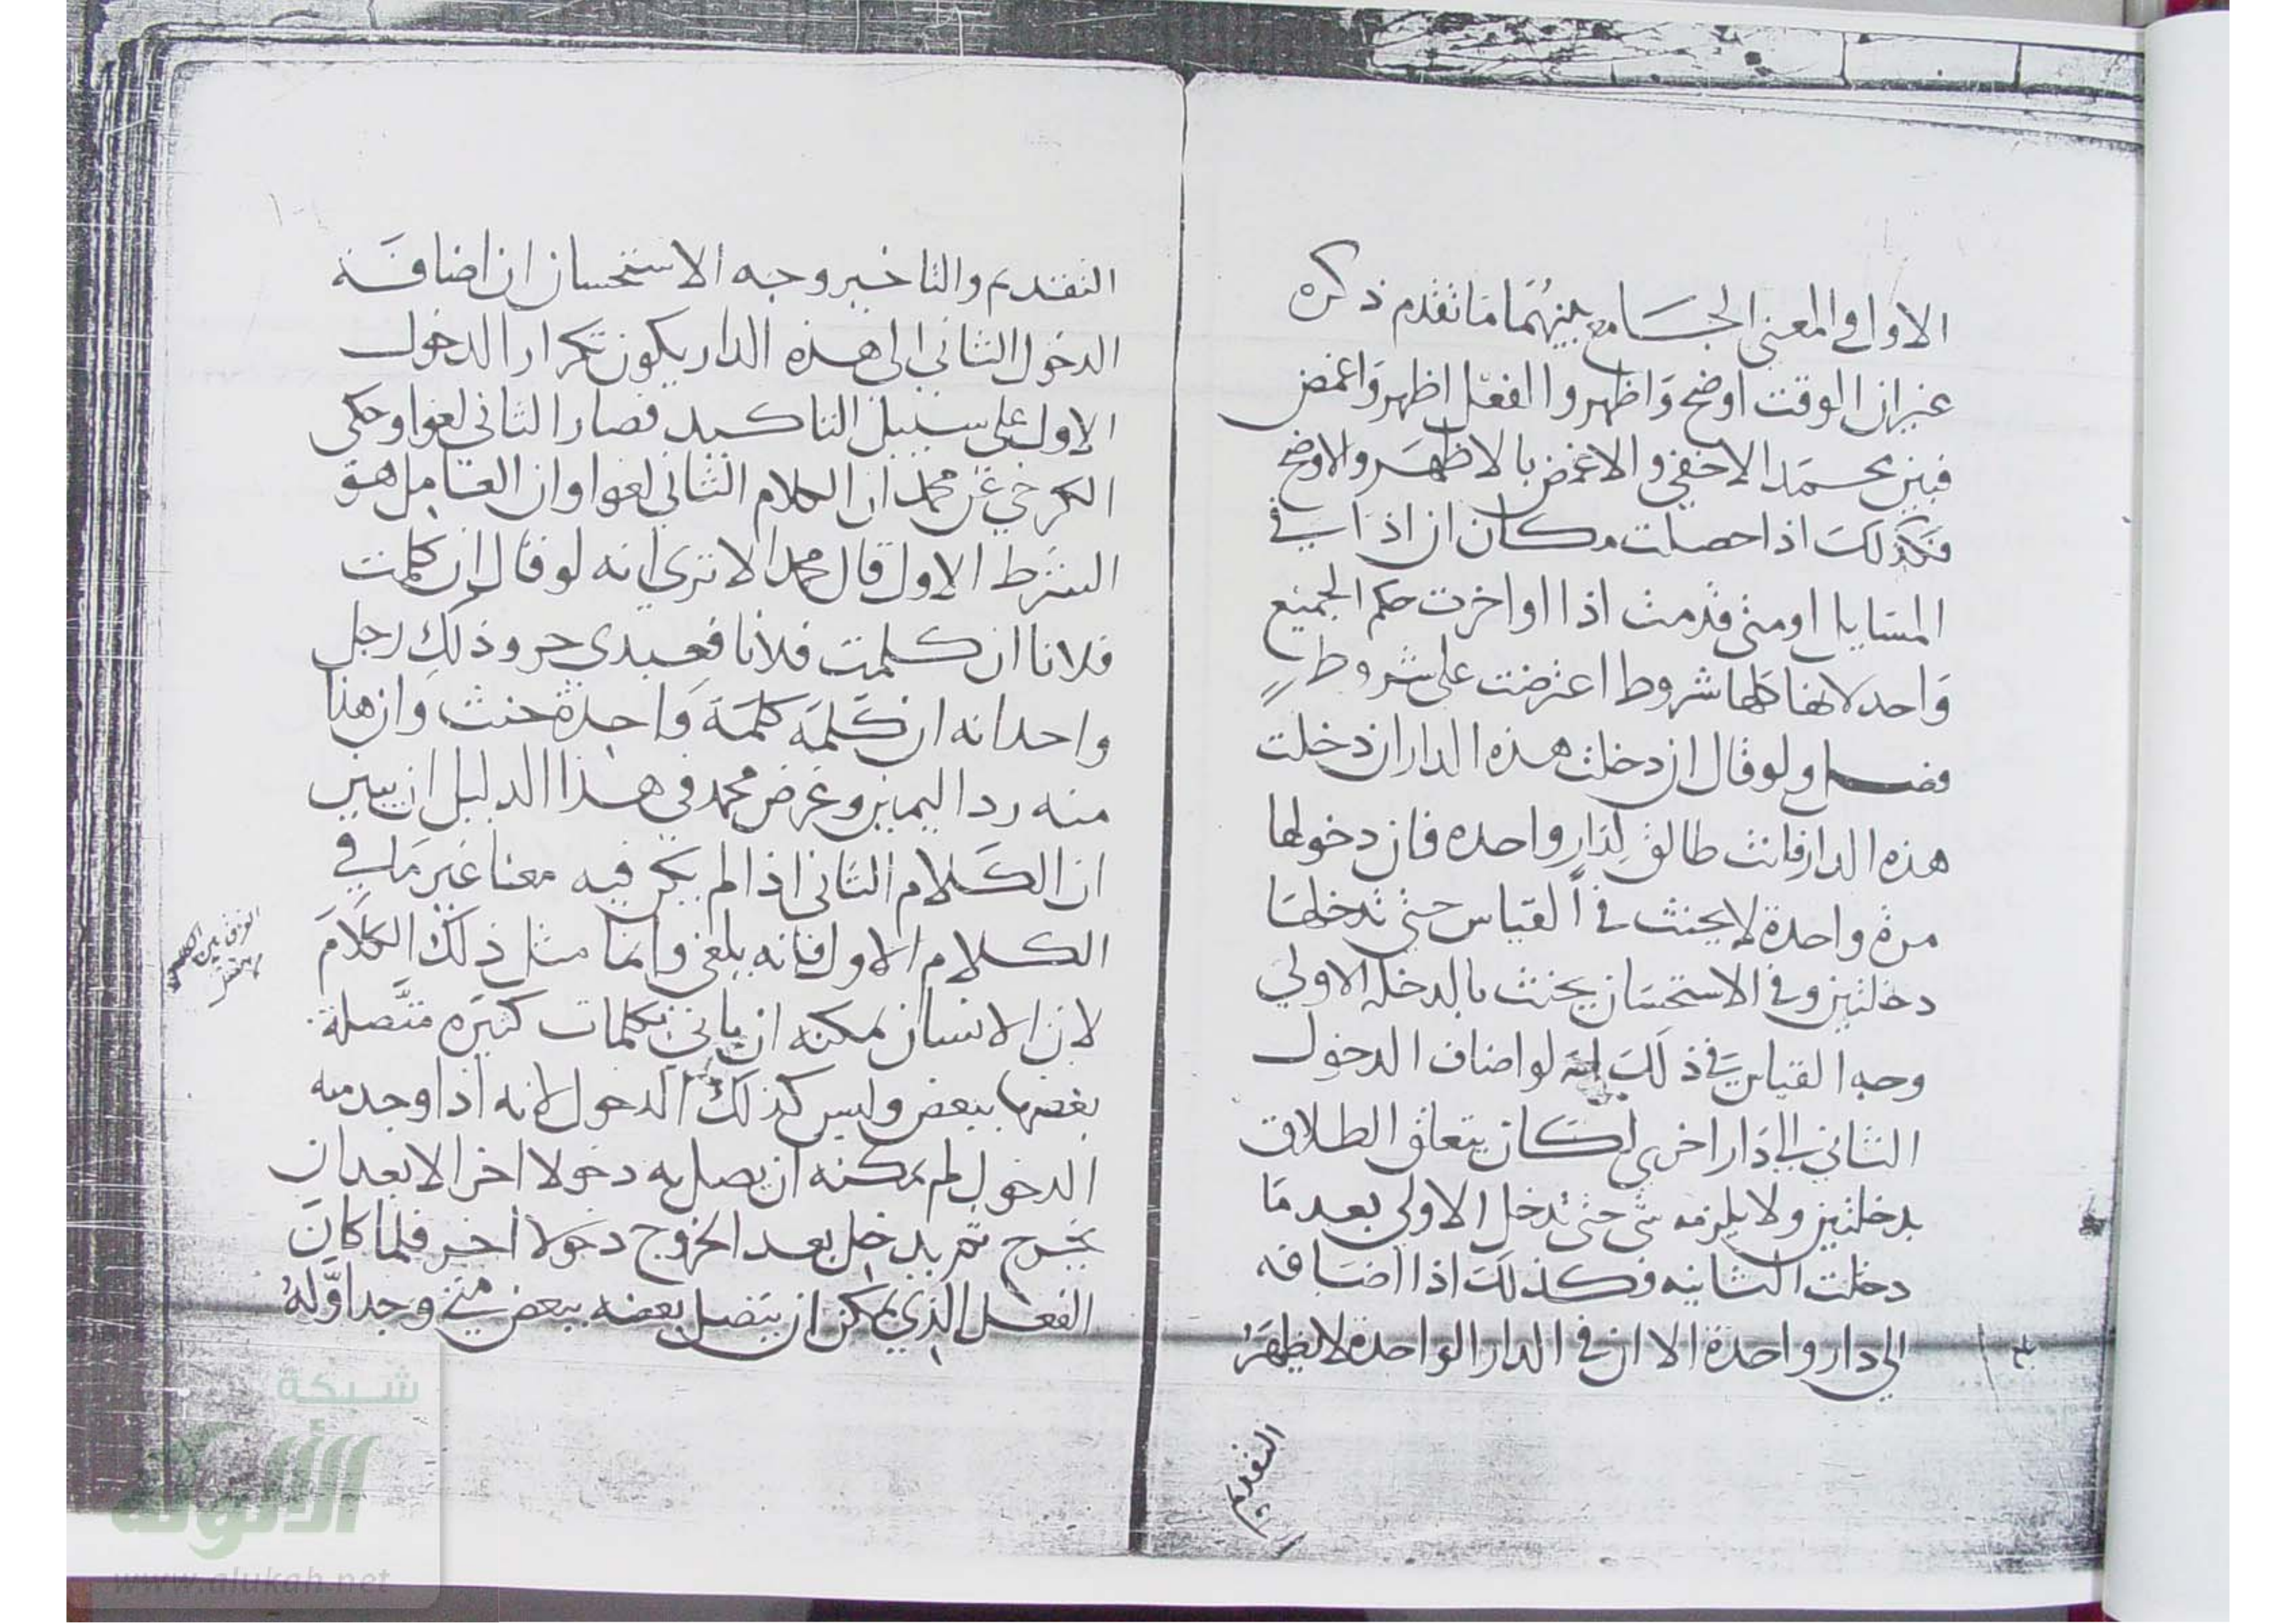 الاول والمعنى الجامع بينهما ما تقدم ذكره
غير ان الوقت اوضح واظهر والفعل اظهر واغمض
فبين محمد الاخفى والاغمض بالاظهر والاوضح
فكذلك اذا حصلت مكان ان اذا في
المسايل او متى قدمت اذا او اخرت حكم الجميع
واحد لانها كلها شروط اعترضت على شروط
فصل ولو قال ان دخلت هذه الدار ان دخلت
هذه الدار فانت طالق لدار واحده فان دخولها
مرة واحدة لا يحنث في القياس حتى تدخلها
دخلتين وفي الاستحسان يحنث بالدخلة الاولي
وجه القياس في ذلك انه لو اضاف الدخول
الثاني الي دار اخرى لكان يتعلق الطلاق
بدخلتين ولا يلزمه شي حتى تدخل الاولي بعد ما
دخلت الثانيه فكذلك اذا اضافه
الي دار واحدة الا ان في الدار الواحدة لا يظهر
التقديم
التقديم والتاخير وجه الاستحسان ان اضافة
الدخول الثاني الى هذه الدار يكون تكرار الدخول
الاول على سبيل التاكيد فصار الثاني لغوا وحكى
الكرخي عن محمد ان الكلام الثاني لغوا وان العامل هو
الشرط الاول قال محمد الا ترى انه لو قال ان كلمت
فلانا ان كلمت فلانا فعبدي حر وذلك رجل
واحد انه ان كلمه كلمة واحدة حنث وان هذا
منه رد اليمين وغرض محمد في هذا الدليل ان يبين
ان الكلام الثاني اذا لم يكن فيه معنا غير ما في
الكلام الاول فانه يلغى وانما مثل ذلك الكلام
لان الانسان يمكنه ان ياتي بكلمات كثيره متصلة
بعضها ببعض وليس كذلك الدخول لانه اذا وجد منه
الدخول لم يمكنه ان يصل به دخولا اخر الا بعد ان
يخرج ثم يدخل بعد الخروج دخولا اخر فلما كان
الفعل الذي يمكن ان يتصل بعضه ببعض متى وجد اوله
شبكة
الألوكة
www.alukah.net